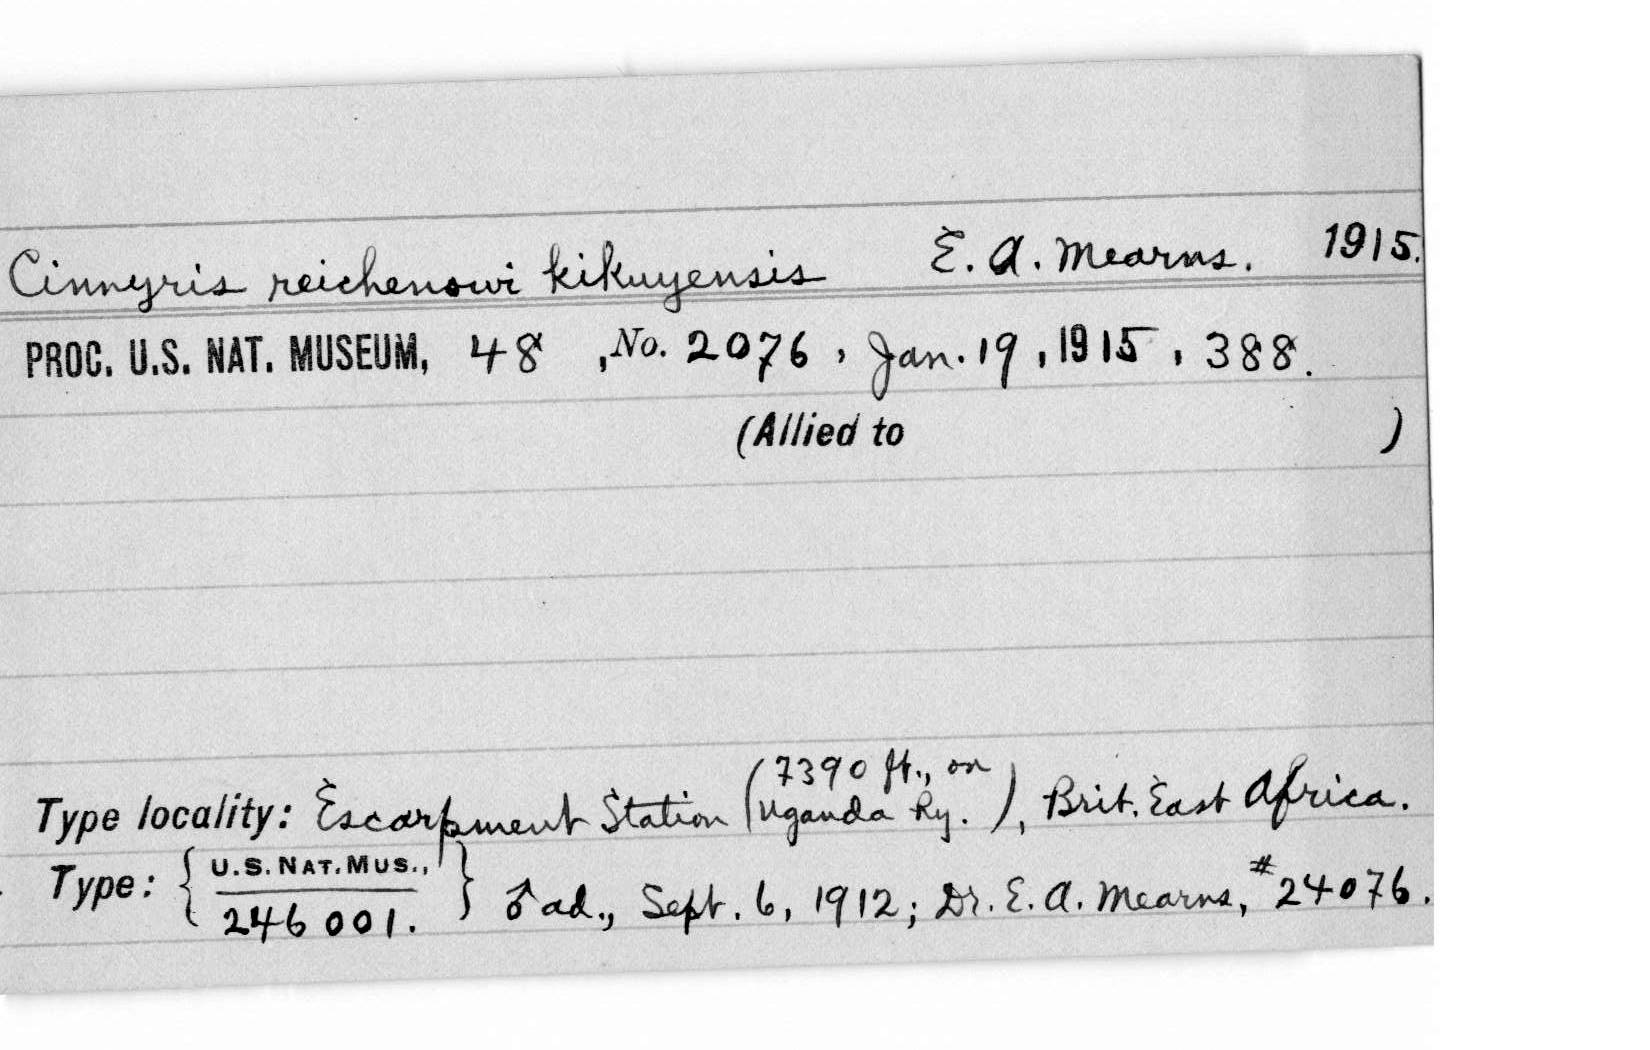 Cinnyris reichenowi kikuyensis E. A. Mearns. 1915.
PROC. U.S. NAT. MUSEUM, 48 , No. 2076 , Jan. 19 , 1915 , 388.
(Allied to )
Type locality: Escarpment Station (7390 ft., on Uganda Ry.), Brit. East Africa.
Type: { U.S. NAT. MUS., 246001. } ♂ ad., Sept. 6, 1912; Dr. E. A. Mearns, #24076.